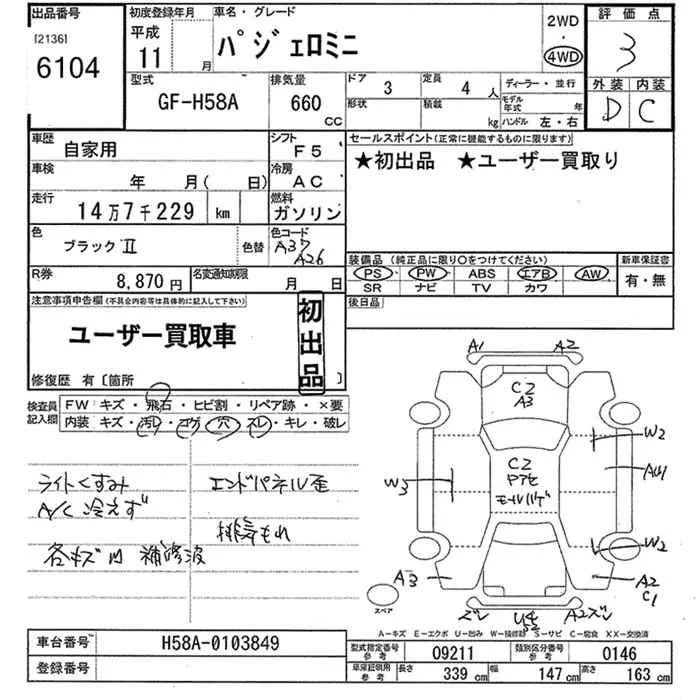 出品番号
[2136]
6104
初度登録年月
平成
11 月
車名・グレード
パジェロミニ
2WD
・
4WD
評価点
3
外装 内装
D C
型式
GF-H58A
排気量
660
CC
ドア 3
定員 4 人
形状
積載 kg
ディーラー・並行
モデル年式 年
ハンドル 左・右
車歴 自家用
シフト F5
車検 年 月( 日)
冷房 AC
走行 14万7千229 km
燃料 ガソリン
色 ブラックⅡ
色替
色コード
A37
A26
R券 8,870 円
名変通知期限 月 日
セールスポイント(正常に機能するものに限ります)
★初出品 ★ユーザー買取り
装備品 (純正品に限り○をつけてください)
PS PW ABS エアB AW
SR ナビ TV カワ
新車保証書
有・無
後日品
注意事項申告欄 (不具合内容等は具体的に記入して下さい)
ユーザー買取車
初出品
修復歴 有〔箇所 〕
検査員記入欄
FW キズ・飛石・ヒビ割・リペア跡・×要
内装 キズ・汚レ・コゲ・穴・スレ・キレ・破レ
ライトくすみ
A/C 冷えず
各キズ凹 補修波
エンドパネル歪
排気もれ
A1 A2
C2
A3
W2
C2
W3
W2
A3
A2
C1
スペア
ズレ
A2ズレ
A−キズ E−エクボ U−凹み W−補修跡 S−サビ C−腐食 XX−交換済
車台番号 H58A-0103849
登録番号
型式指定番号 参考 09211
類別区分番号 参考 0146
車庫証明用 参考
長さ 339 cm
幅 147 cm
高さ 163 cm